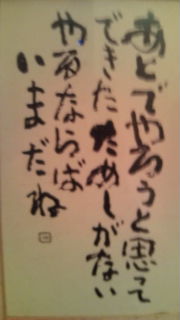 あとでやろうと思って
できたためしがない
やるならば
いまだね